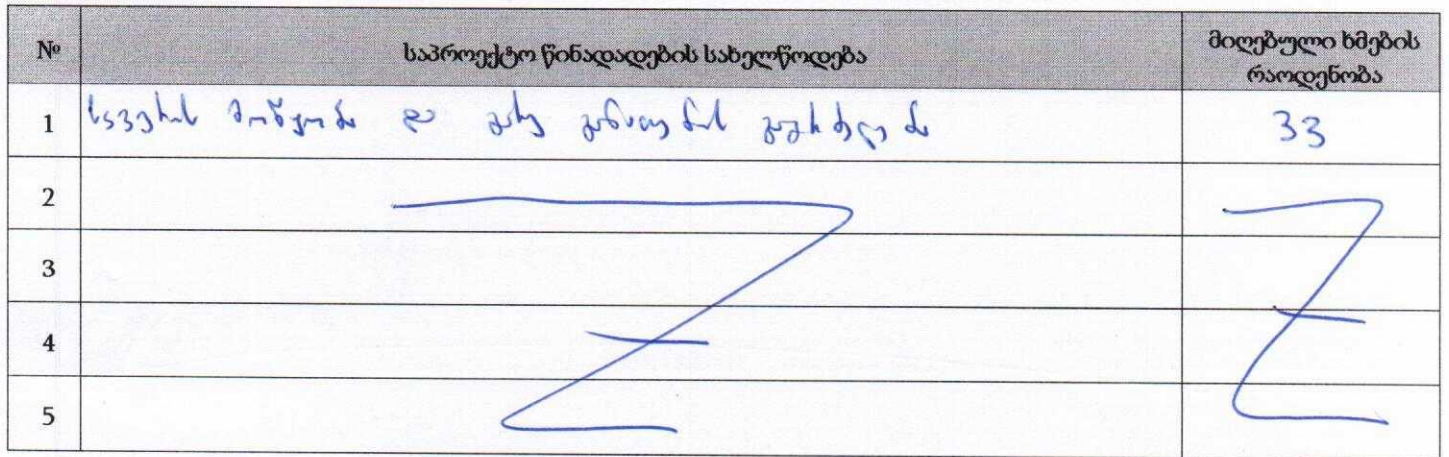 № საპროექტო წინადადების სახელწოდება მიღებული ხმების რაოდენობა
1 სკვერის მოწყობა და გარე განათების გაგრძელება 33
2
3
4
5